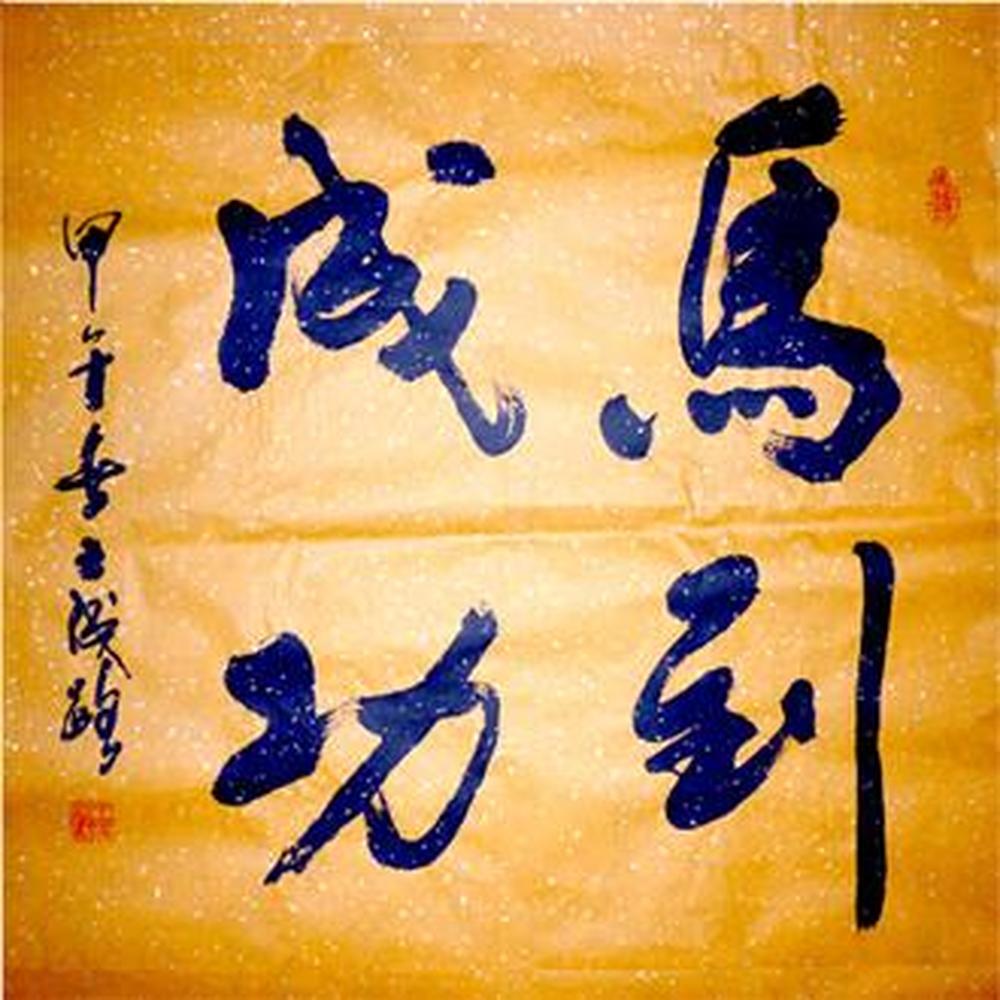 馬到
成功
甲午春